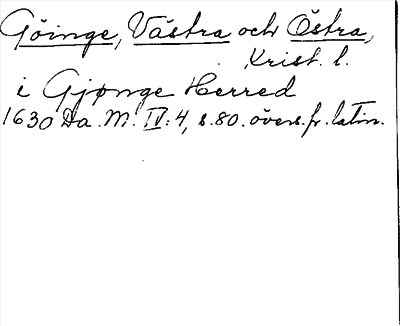 Göinge, Västra och Östra,
Krist. l.
i Gjønge Herred
1630 Da. M. IV: 4, s. 80. övers. fr. latin.